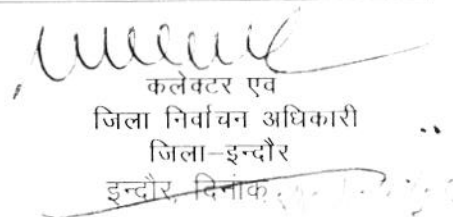 कलेक्टर एव
जिला निर्वाचन अधिकारी
जिला-इन्दौर
इन्दौर, दिनांक